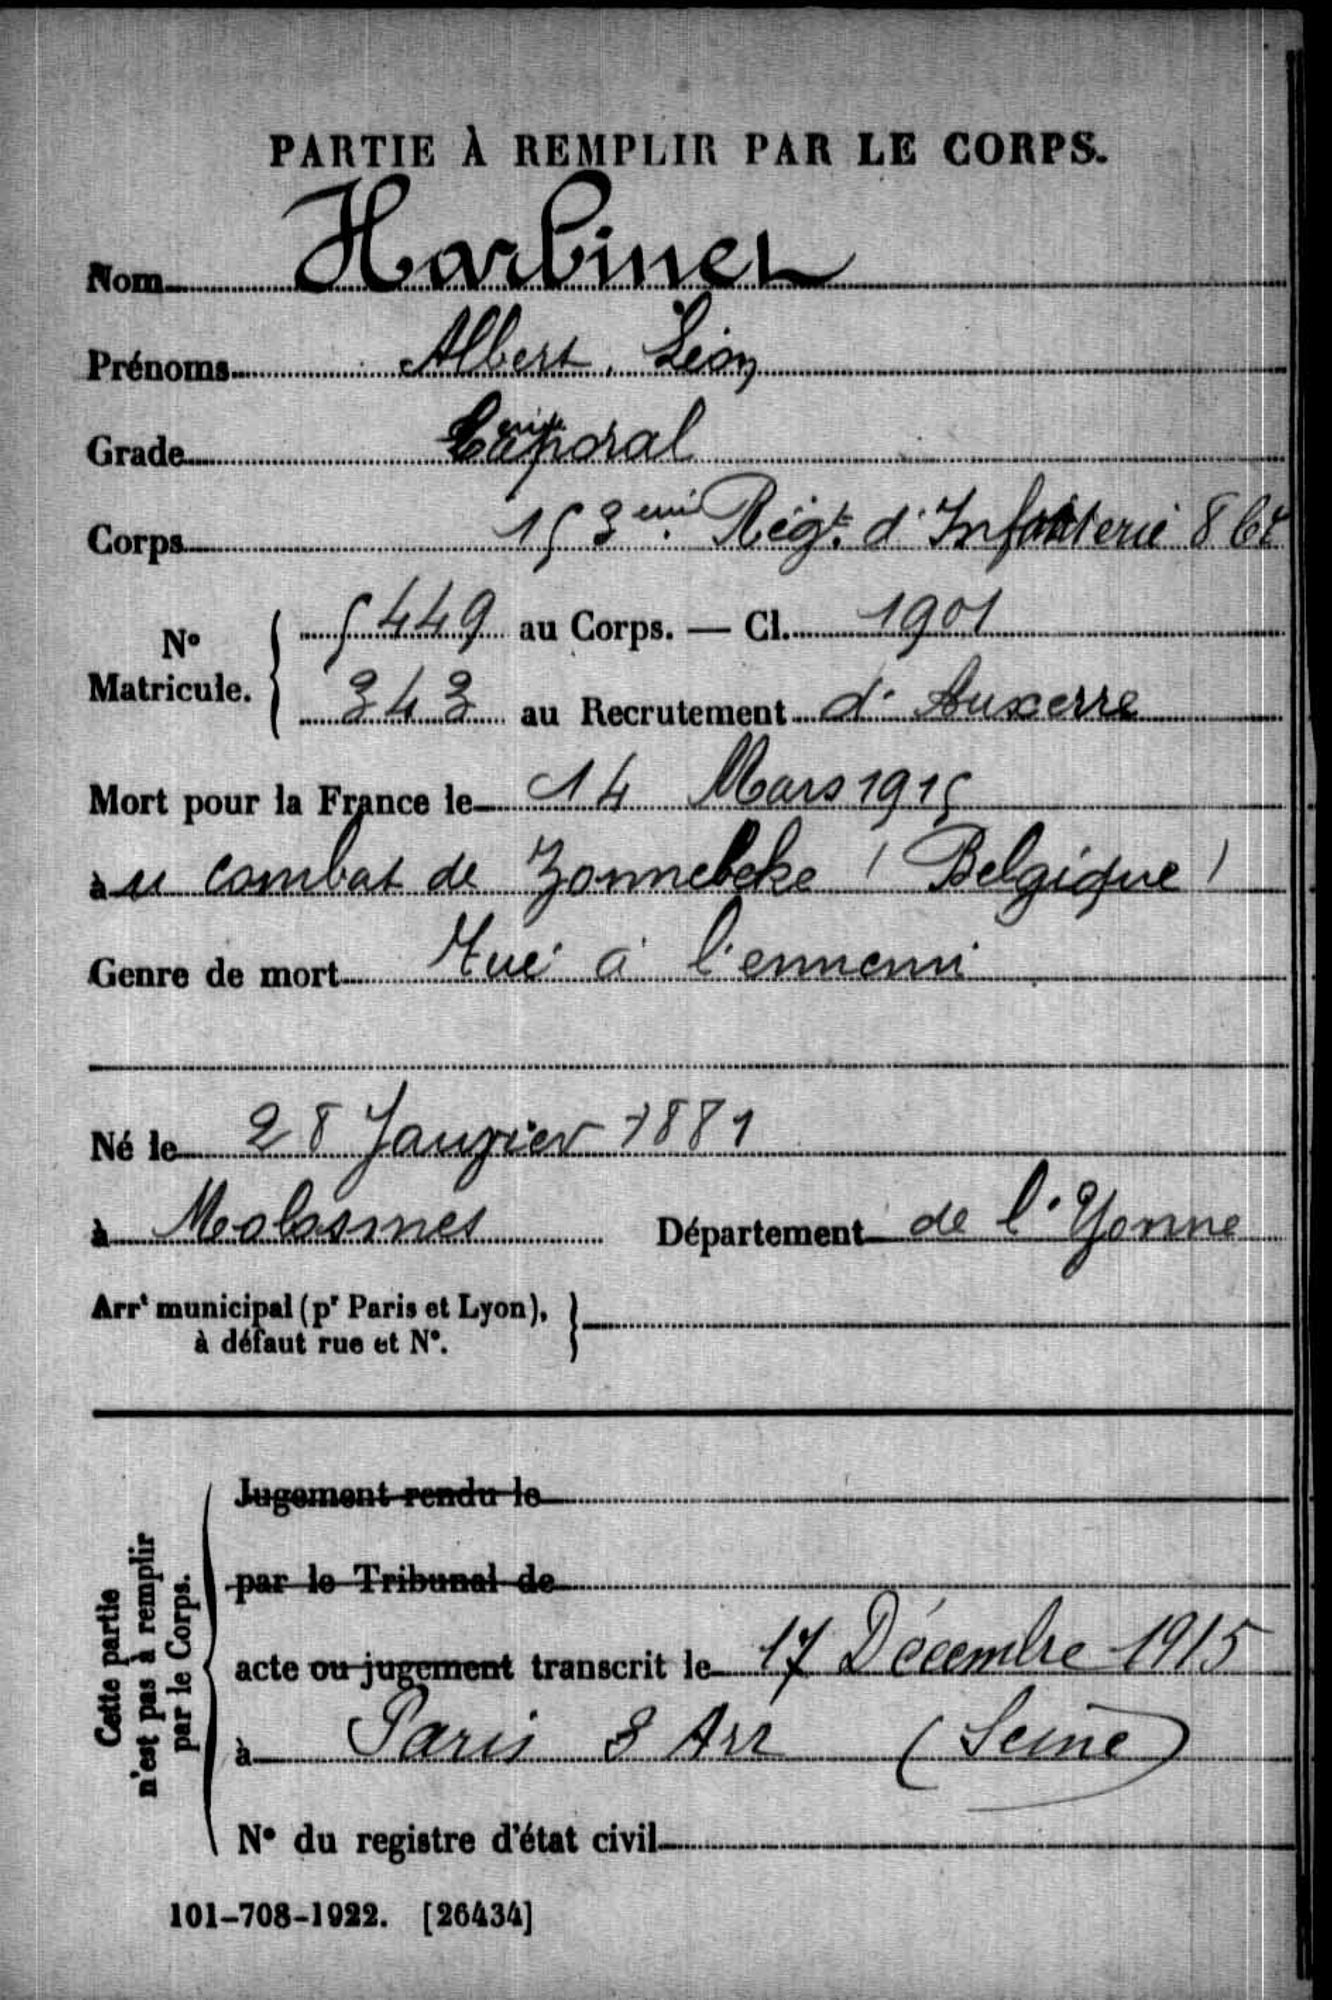 PARTIE À REMPLIR PAR LE CORPS.
Nom Harbinet
Prénoms Albert, Léon
Grade Caporal
Corps 153eme Régt. d'Infanterie 8 Cie
N° Matricule. 5449 au Corps. — Cl. 1901
343 au Recrutement d'Auxerre
Mort pour la France le 14 Mars 1915
au combat de Zonnebeke (Belgique)
Genre de mort Tué à l'ennemi
Né le 28 Janvier 1881
à Molosmes Département de l'Yonne
Arrt municipal (pr Paris et Lyon),
à défaut rue et N°.
Cette partie n'est pas à remplir par le Corps.
Jugement rendu le
par le Tribunal de
acte ou jugement transcrit le 17 Décembre 1915
à Paris 8 Arr (Seine)
N° du registre d'état civil
101-708-1922. [26434]